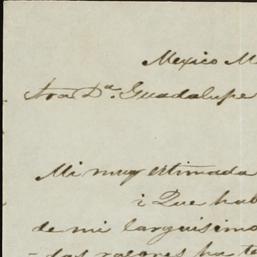 Mexico M
Sra Dª. Guadalupe
Mi muy estimada
¿ Que hab
de mi larguisimo
das razones ha te